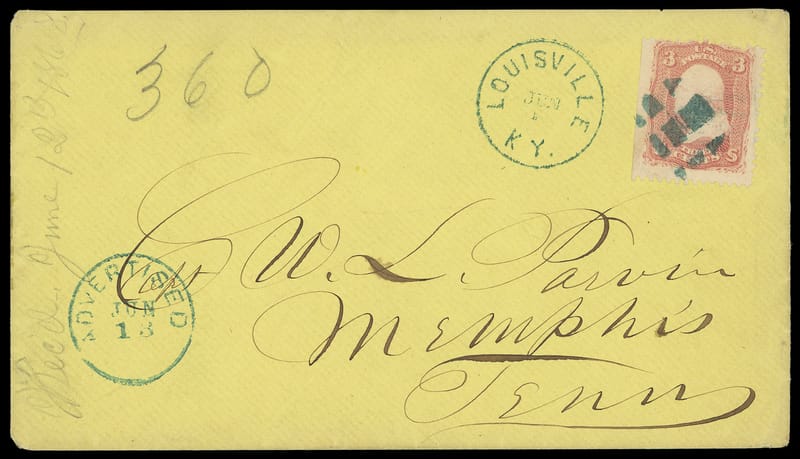 360
LOUISVILLE
JUN
KY.
U.S.
POSTAGE
3 3
CENTS
Capt W. L. Parvin
Memphis
Tenn
ADVERTISED
JUN
13
Rec'd. June 12th 186